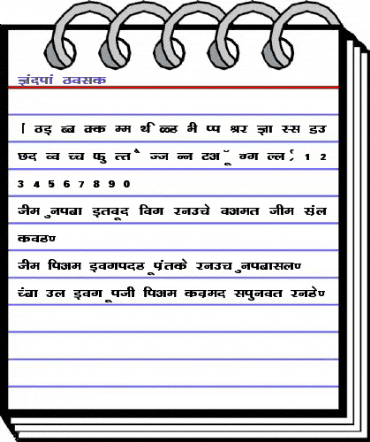 ज्ञंदपां ठवसक
। ठइ ब्ब क्क म्म र्थ ळळ भ्भ प्प श्रर ज्ञा स्स डउ
छद व्व च्च फु त्त ज्ज न्न टअ ग्ग ल्ल 1 2
3 4 5 6 7 8 9 0
जीम ुनपबा इतवूद विग रनउचे वअमत जीम संल
कवहण
जीम पिअम इवगपदह ूप्रंतके रनउच ुनपबासलण
च्ंबा उल इवग ूपजी पिअम कव्रमद सपुनवत रनहेण